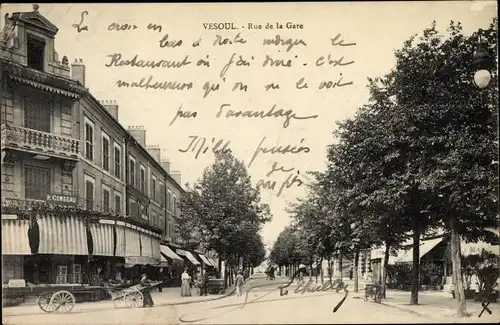 VESOUL. - Rue de la Gare
La croix en
bas à droite indique le
Restaurant où j'ai diné. C'est
malheureux qu'on ne le voit
pas davantage.
Mille pensées
de
P. CENDEAU
X